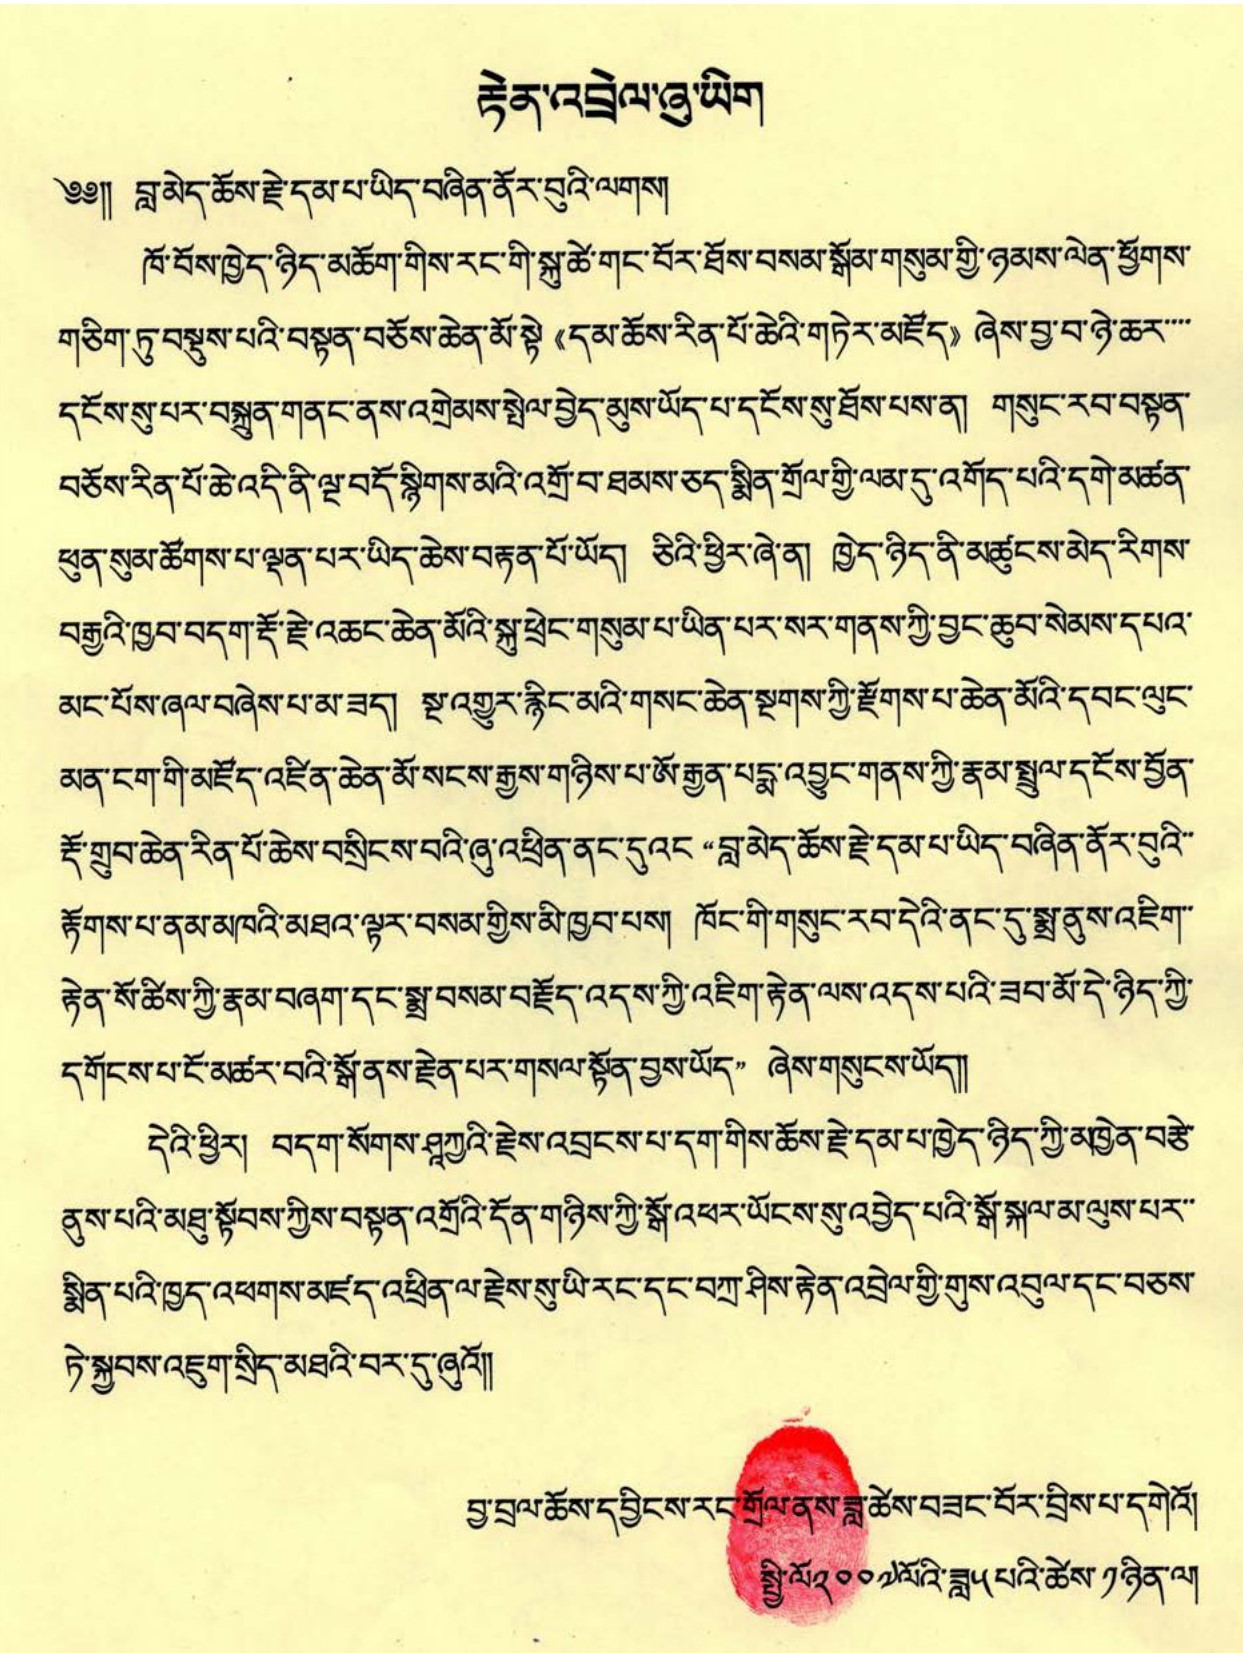 རྟེན་འབྲེལ་ཞུ་ཡིག
༄༅།། བླ་མེད་ཆོས་རྗེ་དམ་པ་ཡིད་བཞིན་ནོར་བུའི་ལགས།
ཁོ་བོས་ཁྱེད་ཉིད་མཆོག་གིས་རང་གི་སྐུ་ཚེ་གང་བོར་ཐོས་བསམ་སྒོམ་གསུམ་གྱི་ཉམས་ལེན་ཕྱོགས་
གཅིག་ཏུ་བསྡུས་པའི་བསྟན་བཅོས་ཆེན་མོ་སྟེ《དམ་ཆོས་རིན་པོ་ཆེའི་གཏེར་མཛོད》ཞེས་བྱ་བ་ཉེ་ཆར་
དངོས་སུ་པར་བསྐྲུན་གནང་ནས་འགྲེམས་སྤེལ་བྱེད་མུས་ཡོད་པ་དངོས་སུ་ཐོས་པས་ན། གསུང་རབ་བསྟན་
བཅོས་རིན་པོ་ཆེ་འདི་ནི་ལྔ་བདོ་སྙིགས་མའི་འགྲོ་བ་ཐམས་ཅད་སྨིན་གྲོལ་གྱི་ལམ་དུ་འགོད་པའི་དགེ་མཚན་
ཕུན་སུམ་ཚོགས་པ་ལྡན་པར་ཡིད་ཆེས་བརྟན་པོ་ཡོད། ཅིའི་ཕྱིར་ཞེ་ན། ཁྱེད་ཉིད་ནི་མཚུངས་མེད་རིགས་
བརྒྱའི་ཁྱབ་བདག་རྡོ་རྗེ་འཆང་ཆེན་མོའི་སྐུ་ཕྲེང་གསུམ་པ་ཡིན་པར་སར་གནས་ཀྱི་བྱང་ཆུབ་སེམས་དཔའ་
མང་པོས་ཞལ་བཞེས་པ་མ་ཟད། སྔ་འགྱུར་རྙིང་མའི་གསང་ཆེན་སྔགས་ཀྱི་རྫོགས་པ་ཆེན་མོའི་དབང་ལུང་
མན་ངག་གི་མཛོད་འཛིན་ཆེན་མོ་སངས་རྒྱས་གཉིས་པ་ཨོ་རྒྱན་པདྨ་འབྱུང་གནས་ཀྱི་རྣམ་སྤྲུལ་དངོས་བྱོན་
རྡོ་གྲུབ་ཆེན་རིན་པོ་ཆེས་བསྲིངས་བའི་ཞུ་འཕྲིན་ནང་དུ་འང “བླ་མེད་ཆོས་རྗེ་དམ་པ་ཡིད་བཞིན་ནོར་བུའི་
རྟོགས་པ་ནམ་མཁའི་མཐའ་ལྟར་བསམ་གྱིས་མི་ཁྱབ་པས། ཁོང་གི་གསུང་རབ་དེའི་ནང་དུ་སྨྲ་ནུས་འཇིག་
རྟེན་སོ་ཚིས་ཀྱི་རྣམ་བཞག་དང་སྨྲ་བསམ་བརྗོད་འདས་ཀྱི་འཇིག་རྟེན་ལས་འདས་པའི་ཟབ་མོ་དེ་ཉིད་ཀྱི་
དགོངས་པ་ངོ་མཚར་བའི་སྒོ་ནས་རྗེན་པར་གསལ་སྟོན་བྱས་ཡོད” ཞེས་གསུངས་ཡོད།།
དེའི་ཕྱིར། བདག་སོགས་ཤཱཀྱའི་རྗེས་འབྲངས་པ་དག་གིས་ཆོས་རྗེ་དམ་པ་ཁྱེད་ཉིད་ཀྱི་མཁྱེན་བརྩེ་
ནུས་པའི་མཐུ་སྟོབས་ཀྱིས་བསྟན་འགྲོའི་དོན་གཉིས་ཀྱི་སྒོ་འཕར་ཡོངས་སུ་འབྱེད་པའི་སྒོ་སྐལ་མ་ལུས་པར་
སྨིན་པའི་ཁྱད་འཕགས་མཛད་འཕྲིན་ལ་རྗེས་སུ་ཡི་རང་དང་བཀྲ་ཤིས་རྟེན་འབྲེལ་གྱི་གུས་འབུལ་དང་བཅས་
ཏེ་སྐྱབས་འཇུག་སྲིད་མཐའི་བར་དུ་ཞུའོ།།
བྱ་བྲལ་ཆོས་དབྱིངས་རང་གྲོལ་ནས་ཟླ་ཚེས་བཟང་པོར་བྲིས་པ་དགེའོ།
སྤྱི་ལོ༢༠༠༧ལོའི་ཟླ༥པའི་ཚེས་༡ཉིན་ལ།